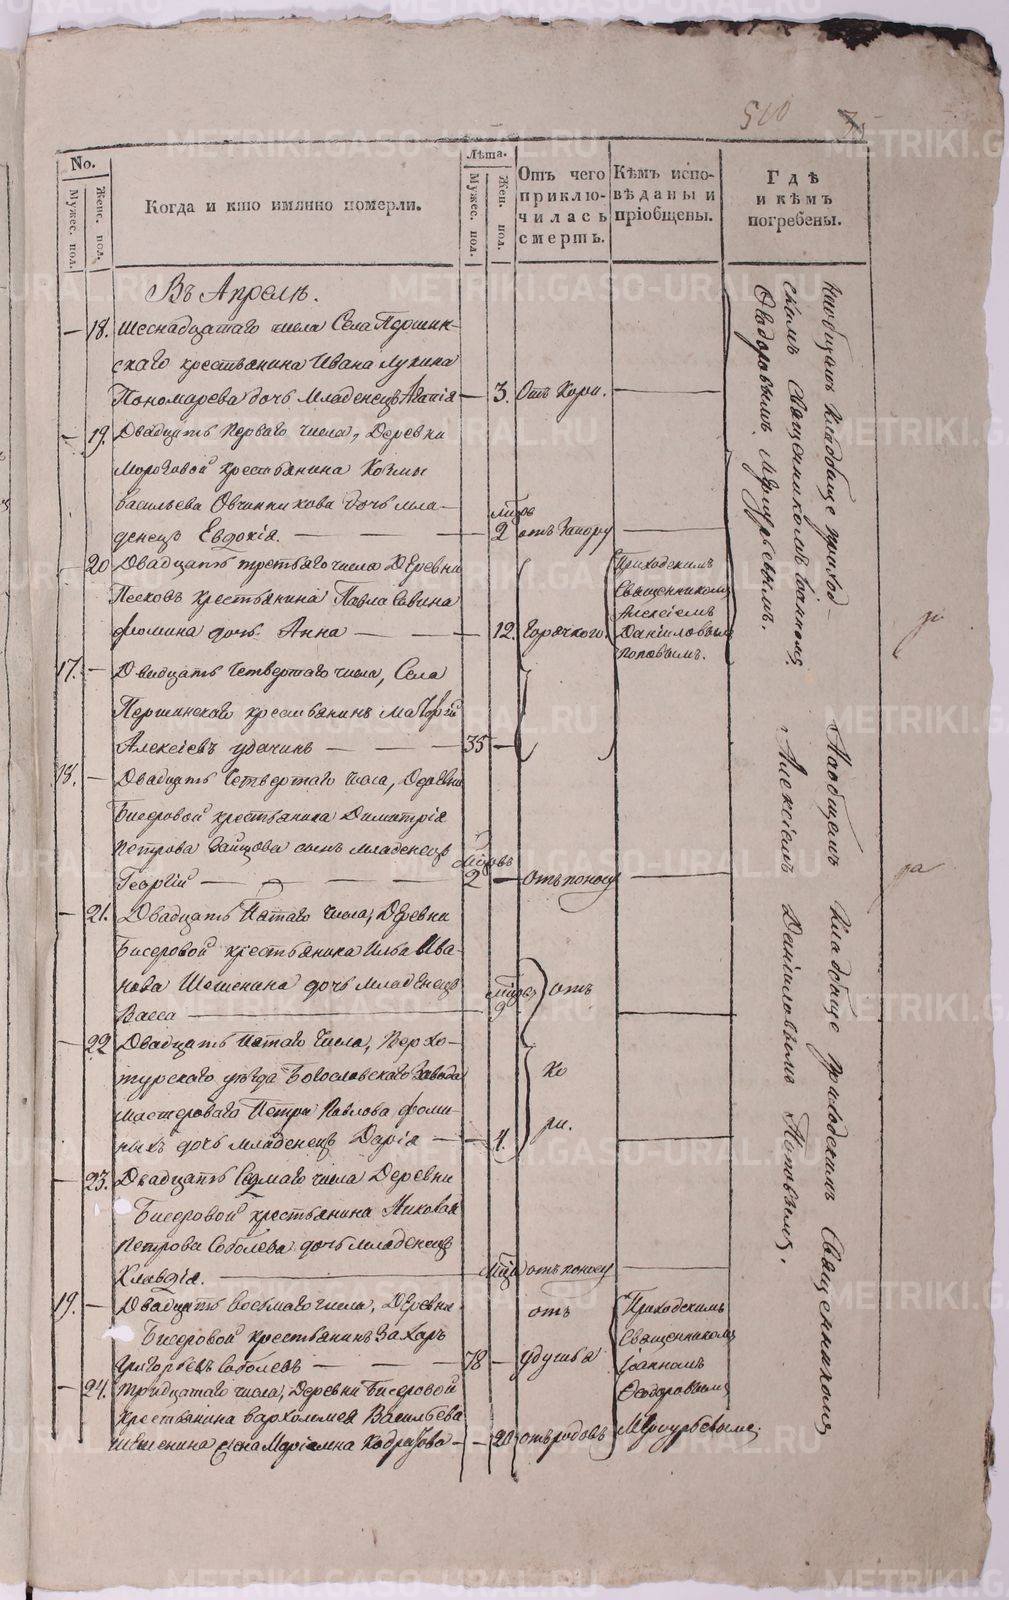 510
No.
Мужес. пол.
Женс. пол.
Когда и кто имянно померли.
Лѣта.
Мужес. пол.
Жен. пол.
Отъ чего
приклю-
чилась
смерть.
Кѣмъ испо-
вѣданы и
пріобщены.
Гдѣ
и кѣмъ
погребены.
Въ Апрелѣ.
— 18. Шеснадцатаго числа Села Першин-
скаго крестьянина Ивана Лукина
Пономарева дочь младенецъ — 3. Отъ Кори. —
— 19. Двадцать перваго числа, Деревни
крестьянина Козмы
Васильева Овчинникова дочь мла-
денецъ Евдокія. — 2 отъ запору —
— 20 Двадцать третьяго числа Деревни
Песковъ крестьянина Павла Савина
Фомина дочь Анна — 12. Горячкого.
Приходскимъ
Священникомъ
Алексіемъ
Даніиловымъ
Поповымъ.
17. — Двадцать четвертаго числа, Села
Першинскаго крестьянинъ
Алексіевъ Удачинъ — 35 —
18. — Двадцать четвертаго числа, Деревни
Бисеровой крестьянина Димитрія
Петрова Зайцова сынъ младенецъ
Георгій — 2 — отъ поносу —
— 21. Двадцать пятаго числа, Деревни
Бисеровой крестьянина Ильи Ива-
нова Шешенина дочь младенецъ
Васса — 9 отъ —
— 22 Двадцать пятаго числа, Верхо-
турскаго уѣзда Богословскаго Завода
мастероваго Петра Павлова Фоми-
ныхъ дочь младенецъ Дарія — 4. ко
ри. —
— 23. Двадцать седмаго числа Деревни
Бисеровой крестьянина Николая
Петрова Соболева дочь младенецъ
Клавдія. — отъ поносу —
19. — Двадцать восьмаго числа, Деревни
Бисеровой крестьянинъ Захаръ
Григорьевъ Соболевъ — 78 — отъ удушья
Приходскимъ
Священникомъ
Іоанномъ
Ѳеодоровымъ
Меркурьевымъ.
— 24. Тридцатаго числа, Деревни Бисеровой
крестьянина Варѳоломея Васильева
Шешенина жена Маріамна — 20 отъ родовъ
На общемъ кладбище приход-
скимъ Священникомъ Іоанномъ
Ѳеодоровымъ Меркурьевымъ.
На общемъ кладбище приходскимъ Священникомъ
Алексіемъ Даніиловымъ Поповымъ.
METRIKI.GASO-URAL.RU